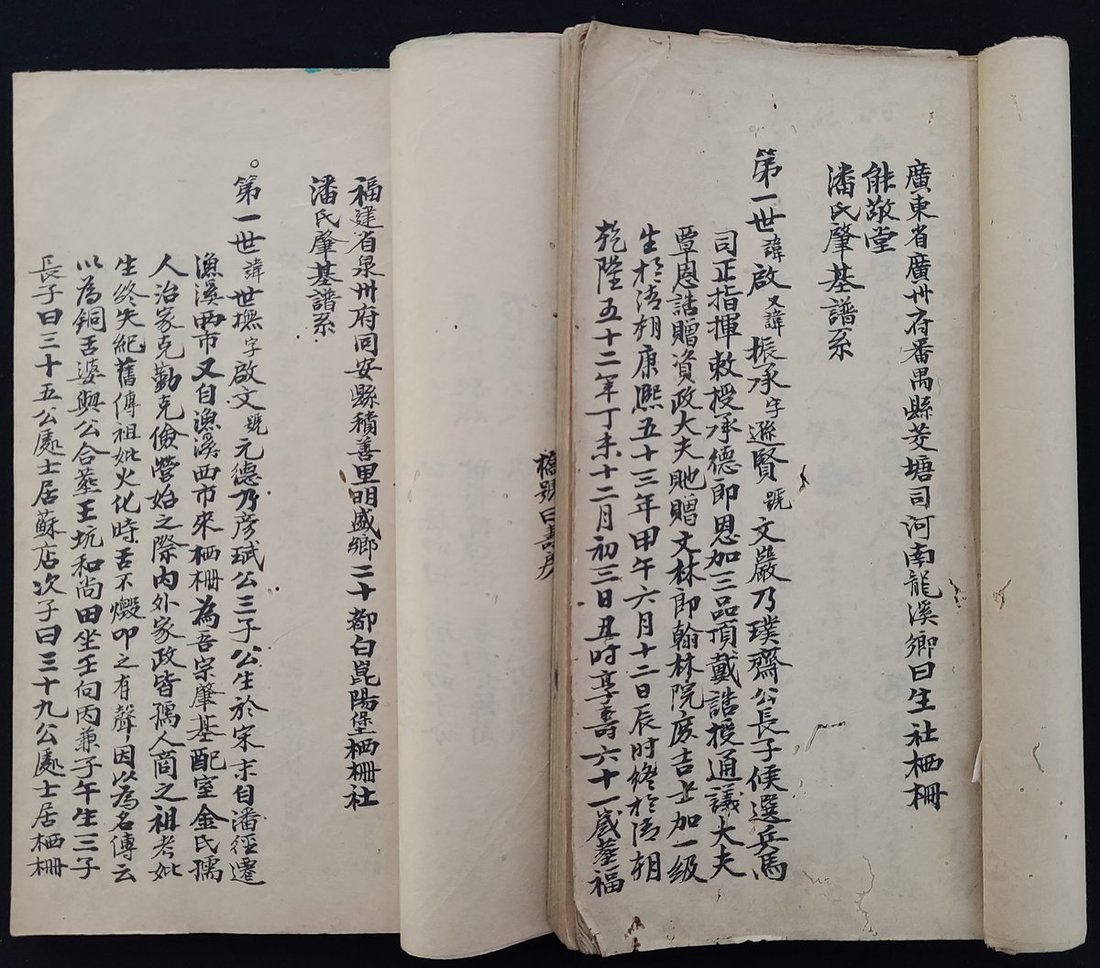 廣東省廣州府番禺縣茭塘司河南龍溪鄉曰生社栖栅
能敬堂
潘氏肇基譜系
第一世諱啟又諱振承字遜賢號文嚴乃璞齋公長子候選兵馬
司正指揮敕授承德郎恩加三品頂戴誥授通議大夫
覃恩誥贈資政大夫貤贈文林郎翰林院庶吉士加一級
生於清朝康熙五十三年甲午六月十二日辰時終於清朝
乾隆五十二年丁未十二月初三日丑時享壽六十一歲塟福
福建省泉州府同安縣積善里明盛鄉二十都白崑陽堡栖栅社
潘氏肇基譜系
。第一世諱世撫字啟文號元德乃彦珷公三子公生於宋末自潘徑遷
漁溪西市又自漁溪西市來栖栅為吾宗肇基配室金氏孺
人治家克勤克儉營始之際內外家政皆孺人啇之祖考妣
生終失紀舊傳祖妣火化時舌不燬叩之有聲因以為名傳云
以為銅舌婆與公合塟王坑和尚田坐壬向丙兼子午生三子
長子曰三十五公處士居蘇店次子曰三十九公處士居栖栅